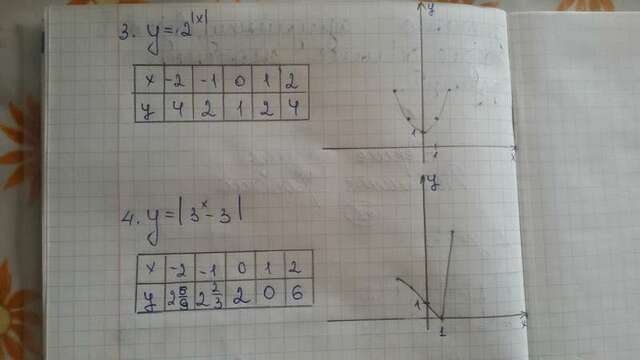 3. y = 2^|x|
y
x -2 -1 0 1 2
y 4 2 1 2 4
1
1
x
y
4. y = |3^x - 3|
x -2 -1 0 1 2
y 2 8/9 2 2/3 2 0 6
1
1
x